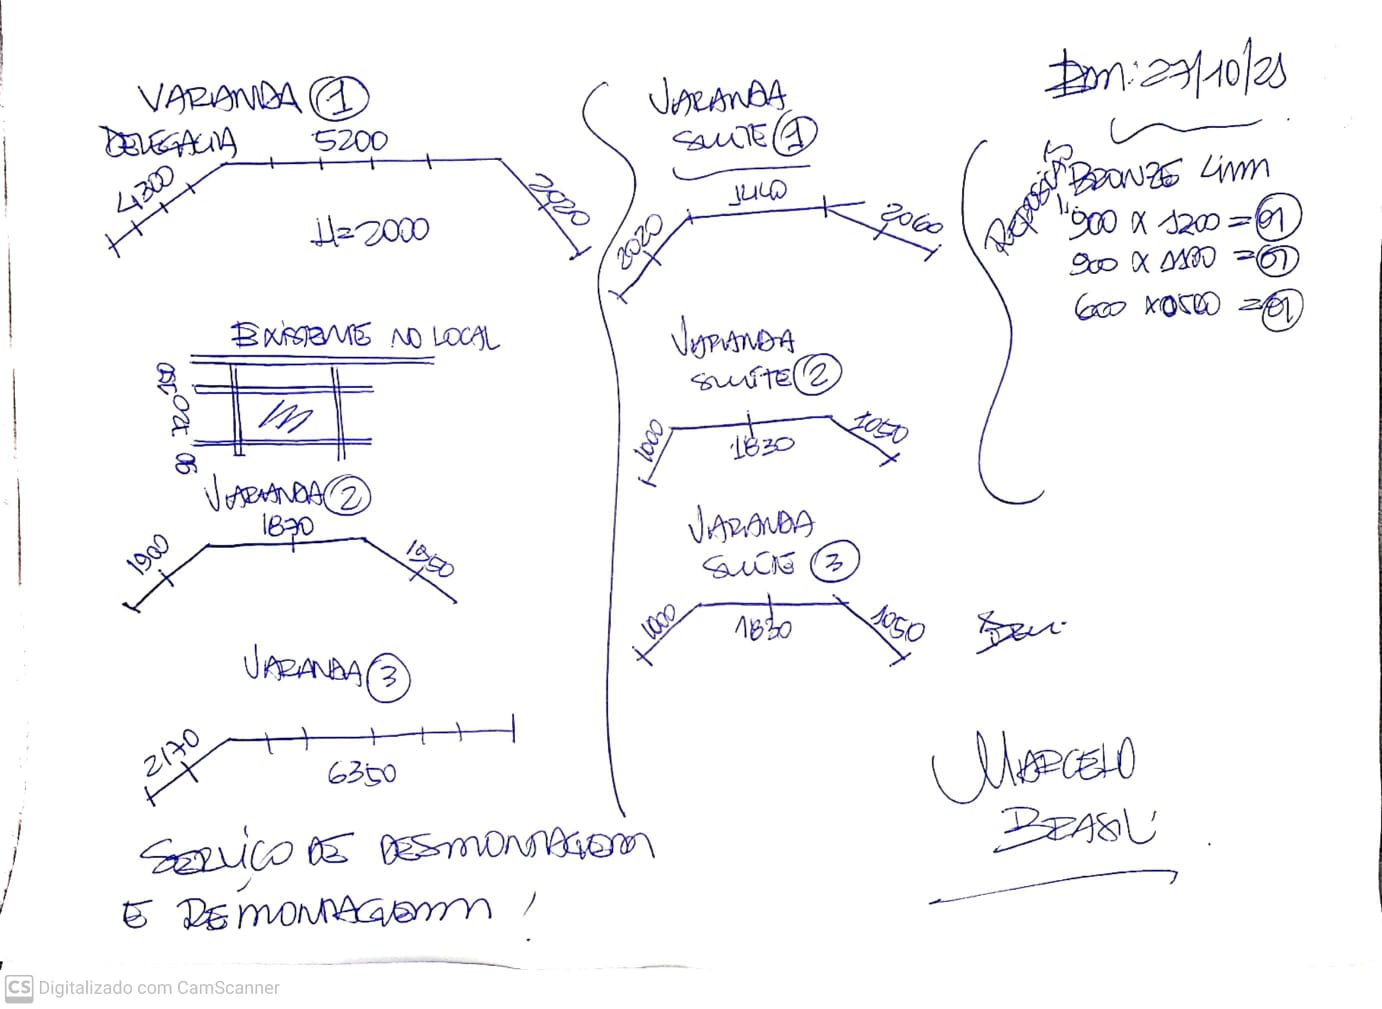 VARANDA 1
DELEGACIA
5200
4300
2020
H=2000
EXISTENTE NO LOCAL
150
720
90
VARANDA 2
1870
1900
1950
VARANDA 3
2170
6350
SERVIÇO DE DESMONTAGEM
E REMONTAGEM!
VARANDA
SUITE 1
1440
2020
2060
VARANDA
SUITE 2
1000
1830
1050
VARANDA
SUITE 3
1000
1830
1050
Em: 27/10/21
BRONZE 4mm
900 x 1200 = 01
900 x 1100 = 01
600 x 0500 = 01
MARCELO
BRASIL
CS Digitalizado com CamScanner